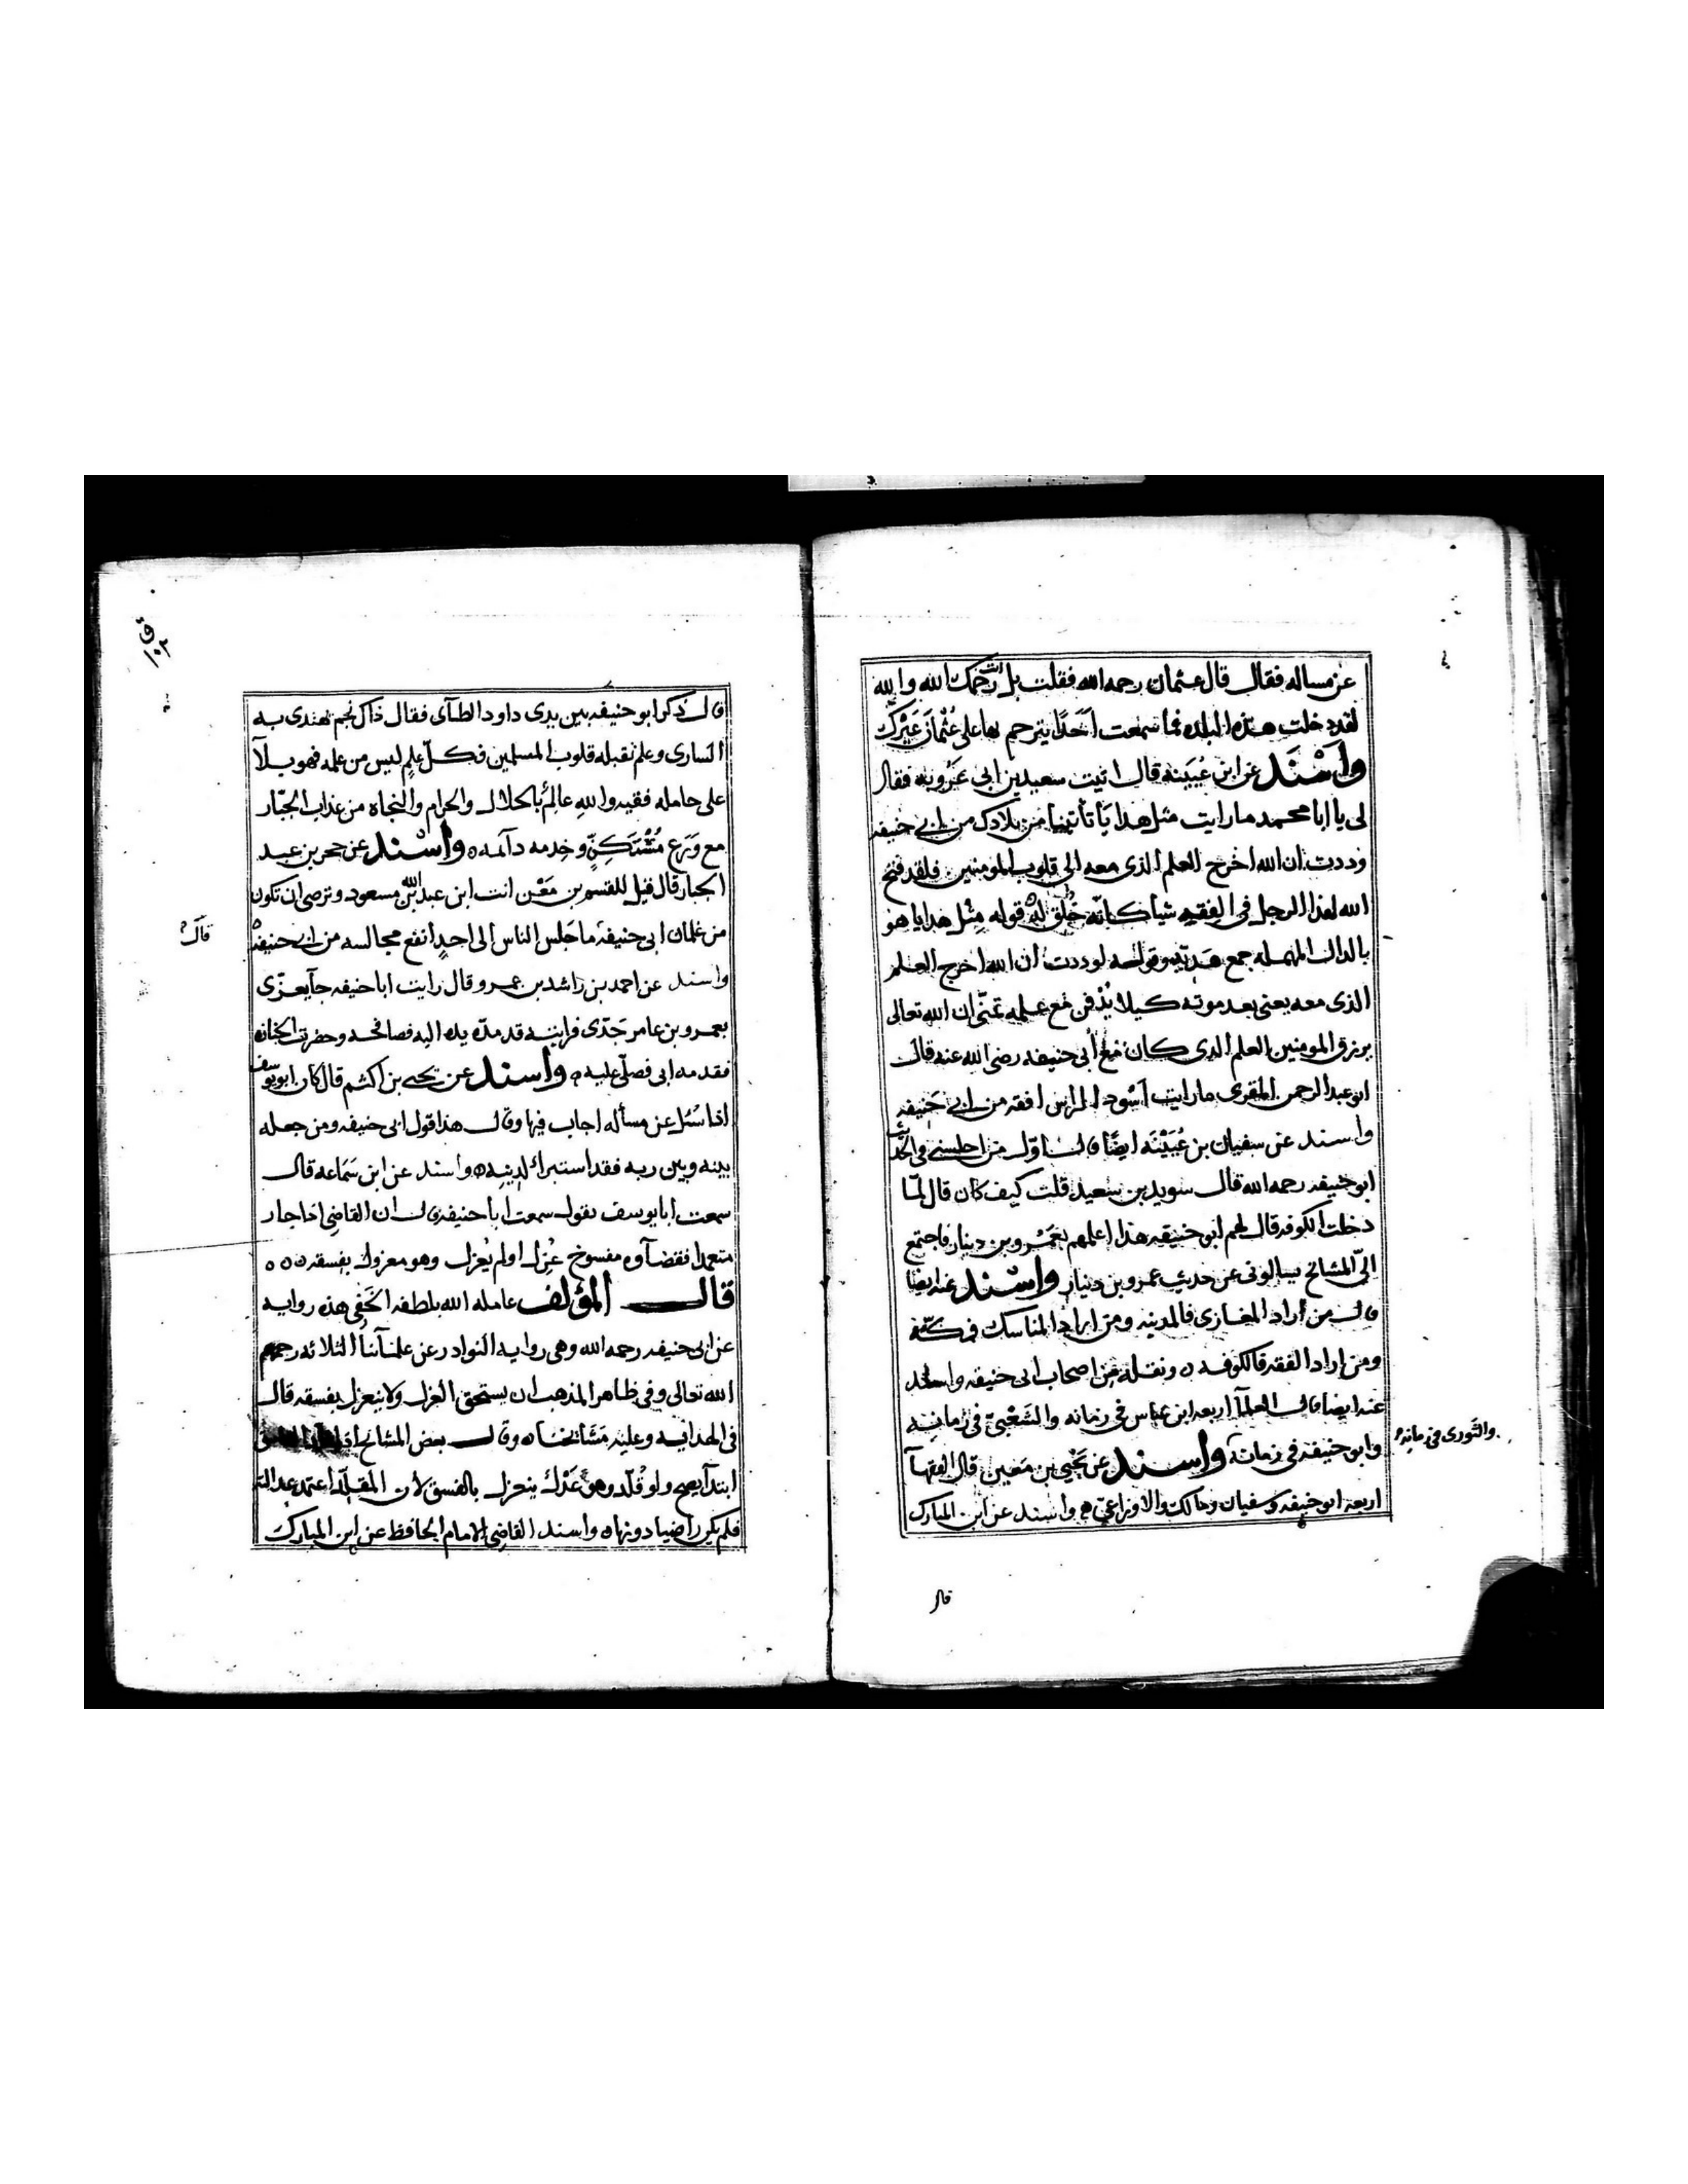 عن مساله فقال قال عثمان رحمه الله فقلت بل انت رحمك الله والله
لقد دخلت هذه البلده فما سمعت احدا يترحم بها على عثمان غيرك
واسند عن ابن عيينه قال اتيت سعيد بن ابى عروبه فقال
لى يا ابا محمد ما رايت مثل هدايا تأتينا من بلادك من ابى حنيفه
وددت ان الله اخرج العلم الذى معه الى قلوب المومنين فلقد فتح
الله لهذا الرجل فى الفقه شيا كانه خلق له قوله مثل هدايا هو
بالدال المهمله جمع هديه وقوله لوددت ان الله اخرج العلم
الذى معه يعنى بعد موته كيلا يدفن مع علمه تمنّى ان الله تعالى
يرزق المومنين العلم الذى كان مع أبى حنيفه رضى الله عنه قال
ابو عبد الرحمن المقرى ما رايت اسود الراس افقه من ابى حنيفه
واسند عن سفيان بن عُيَيْنَه ايضًا قال اوّل من اجلسنى فى الحديث
ابو حنيفه رحمه الله قال سويد بن سعيد قلت كيف كان قال لمّا
دخلت الكوفه قال لهم ابو حنيفه هذا اعلمهم بعَمْرو بن دينار فاجتمع
الىّ المشائخ يسالونى عن حديث عمرو بن دينار واسند عنه ايضا
قال من اراد المغازى فالمدينه ومن اراد المناسك فمكّة
ومن اراد الفقه فالكوفه ه ونقله من اصحاب ابى حنيفه واسند
عنه ايضا قال العلمآ اربعه ابن عباس فى زمانه والشعبىّ فى زمانه
وابو حنيفه فى زمانه واسند عن يَحْيى بن معين قال الفقهآ
والثورى فى زمانه
اربعه ابو حنيفه وسفيان ومالك والاوزاعىّ ه واسند عن ابن المبارك
قال
ق
١٠٣
قال ذكر ابو حنيفه بين يدى داود الطآى فقال ذاك نجم يهتدى به
السارى وعلم تقبله قلوب المسلمين فكلّ علمٍ ليس من علمه فهو بلآ
على حامله فقيه واللهِ عالِمٌ بالحلال والحرام والنجاه من عذاب الجبّار
مع وَرَع مُسْتَكِنّ وخِدمه دآئمه ه واسند عن حجر بن عبد
الجبار قال قيل للقسم بن مَعْن انت ابن عبد الله بن مسعود وترضى ان تكون
من غلمان ابى حنيفه ما جَلس الناس الى احدٍ انفع مجالسه من ابى حنيفه
قال
واسند عن احمد بن راشد بن عمرو قال رايت ابا حنيفه جآ يعزّى
بعمرو بن عامر جَدّى فرايته قد مدّ يده اليه فصافحه وحضرت الجنازه
فقدمه ابى فصلّى عليه ه واسند عن يحيى بن اكثم قال كان ابو يوسف
اذا سُئل عن مسأله اجاب فيها وقال هذا قول ابى حنيفه ومن جعله
بينه وبين ربه فقد استبرأ لدينه ه واسند عن ابن سَمَاعه قال
سمعت ابا يوسف يقول سمعت ابا حنيفه قال ان القاضى اذا جار
متعمدا فقضآوه مفسوخ عُزل اولم يُعزل وهو معزول بفسقه ه ه ه
قال المؤلف عامله الله بلطفه الخفى هذه روايه
عن ابى حنيفه رحمه الله وهى روايه النوادر عن علمآئنا الثلاثه رحمهم
الله تعالى وفى ظاهر المذهب ان يستحق العزل ولا ينعزل بفسقه قال
فى الهدايه وعليه مشايخنا ه وقال بعض المشائخ اذا
ابتدآ يصح ولو قُلّد وهو عَدْل ينعزل بالفسق لان المقلِّد اعتمد عدالته
فلم يكن راضيا دونها ه واسند القاضى الامام الحافظ عن ابن المبارك